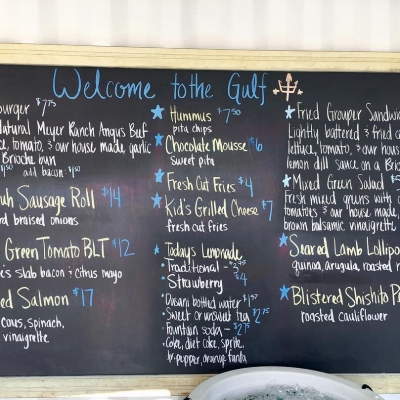 Welcome to the Gulf
burger $7.75
Natural Meyer Ranch Angus Beef
tomato, & our house made garlic
Brioche bun
$1.50 add bacon $1.50
Sausage Roll $14
braised onions
Green Tomato BLT $12
slab bacon & citrus mayo
Salmon $17
cous, spinach,
vinaigrette
Hummus $7.50
pita chips
Chocolate Mousse $6
Sweet pita
Fresh Cut Fries $4
Kid's Grilled Cheese $7
fresh cut fries
Today's Lemonade
Traditional - $3.75
Strawberry $4
bottled water $1.50
Sweet or unsweet tea $2.75
Fountain soda - $2.75
Coke, diet coke, sprite,
dr. pepper, orange fanta
Fried Grouper Sandwi
Lightly battered & fried
lettuce, tomato, & our hous
lemon dill sauce on a Brio
Mixed Green Salad
Fresh mixed greens with
tomatoes & our house made,
brown balsamic vinaigrette
Seared Lamb Lollipo
quinoa, arugula, roasted
Blistered Shishito P
roasted cauliflower